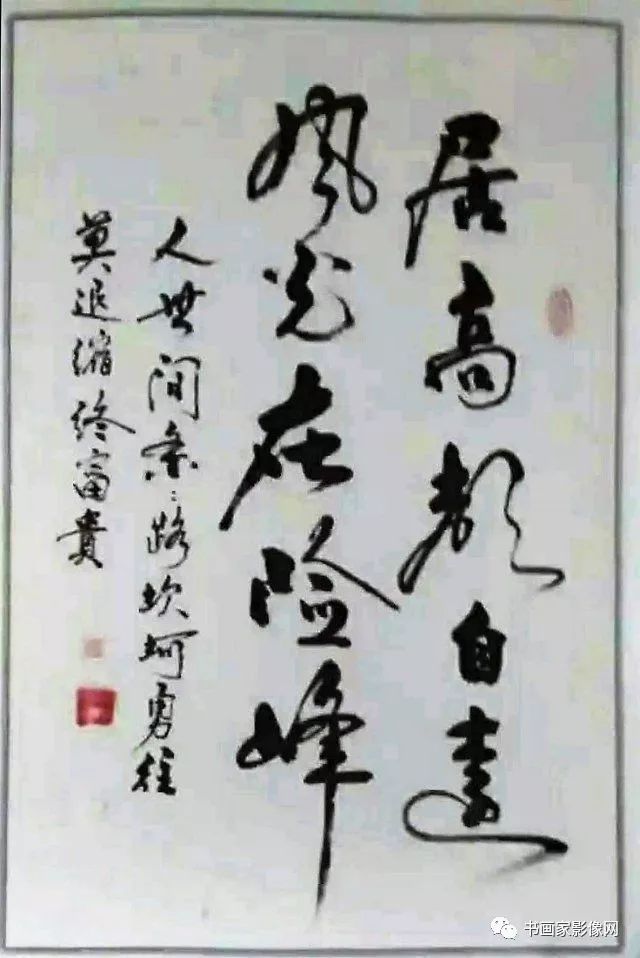 居高聲自遠
風光在险峰
人世间条:路坎坷勇往
莫退缩终富貴
书画家影像网